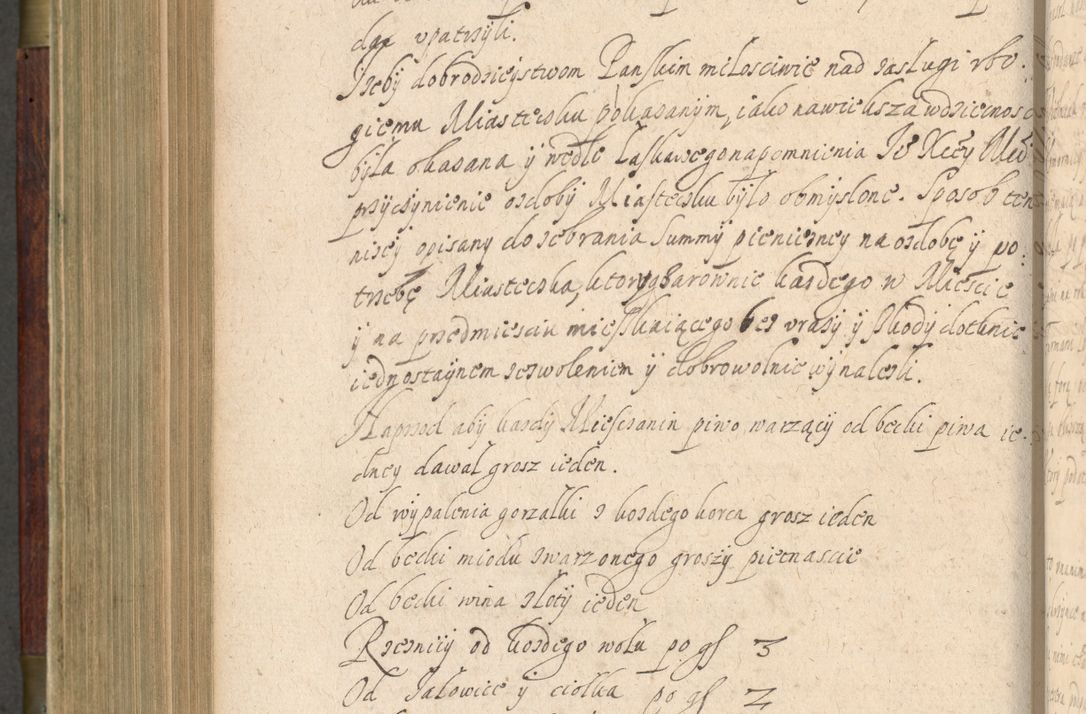 dze vpatrzyli.
Zeby dobrodzieystwom Panskim miłosciwie nad zasługi vbo-
giemu Miasteczku pokazanym, iako nawieksza wdziecznosc
była okazana y wedle Łaskawego napomnienia Je° Kcey Mci
przyczynienie ozdoby Miasteczku było obmyslone. Sposob ten
nizey opisany do zebrania Summy pienieżney na ozdobę y po-
trzebę Miasteczka, ktoryby zarownie kazdego w Miescie
y na przedmiesciu mieszkaiącego bez vrazy y szkody dotknie
iednostaynem zezwoleniem y dobrowolnie wynalezli.
Naprzod aby kazdy Miesczanin piwo warzący od beczki piwa ie-
dney dawał grosz ieden.
Od wypalenia gorzałki z kozdego korca grosz ieden
Od beczki miodu zwarzonego groszy pietnascie
Od beczki wina złoty ieden
Rzeznicy od kozdego wołu po gr 3
Od Jałowice y ciołka po gr 2